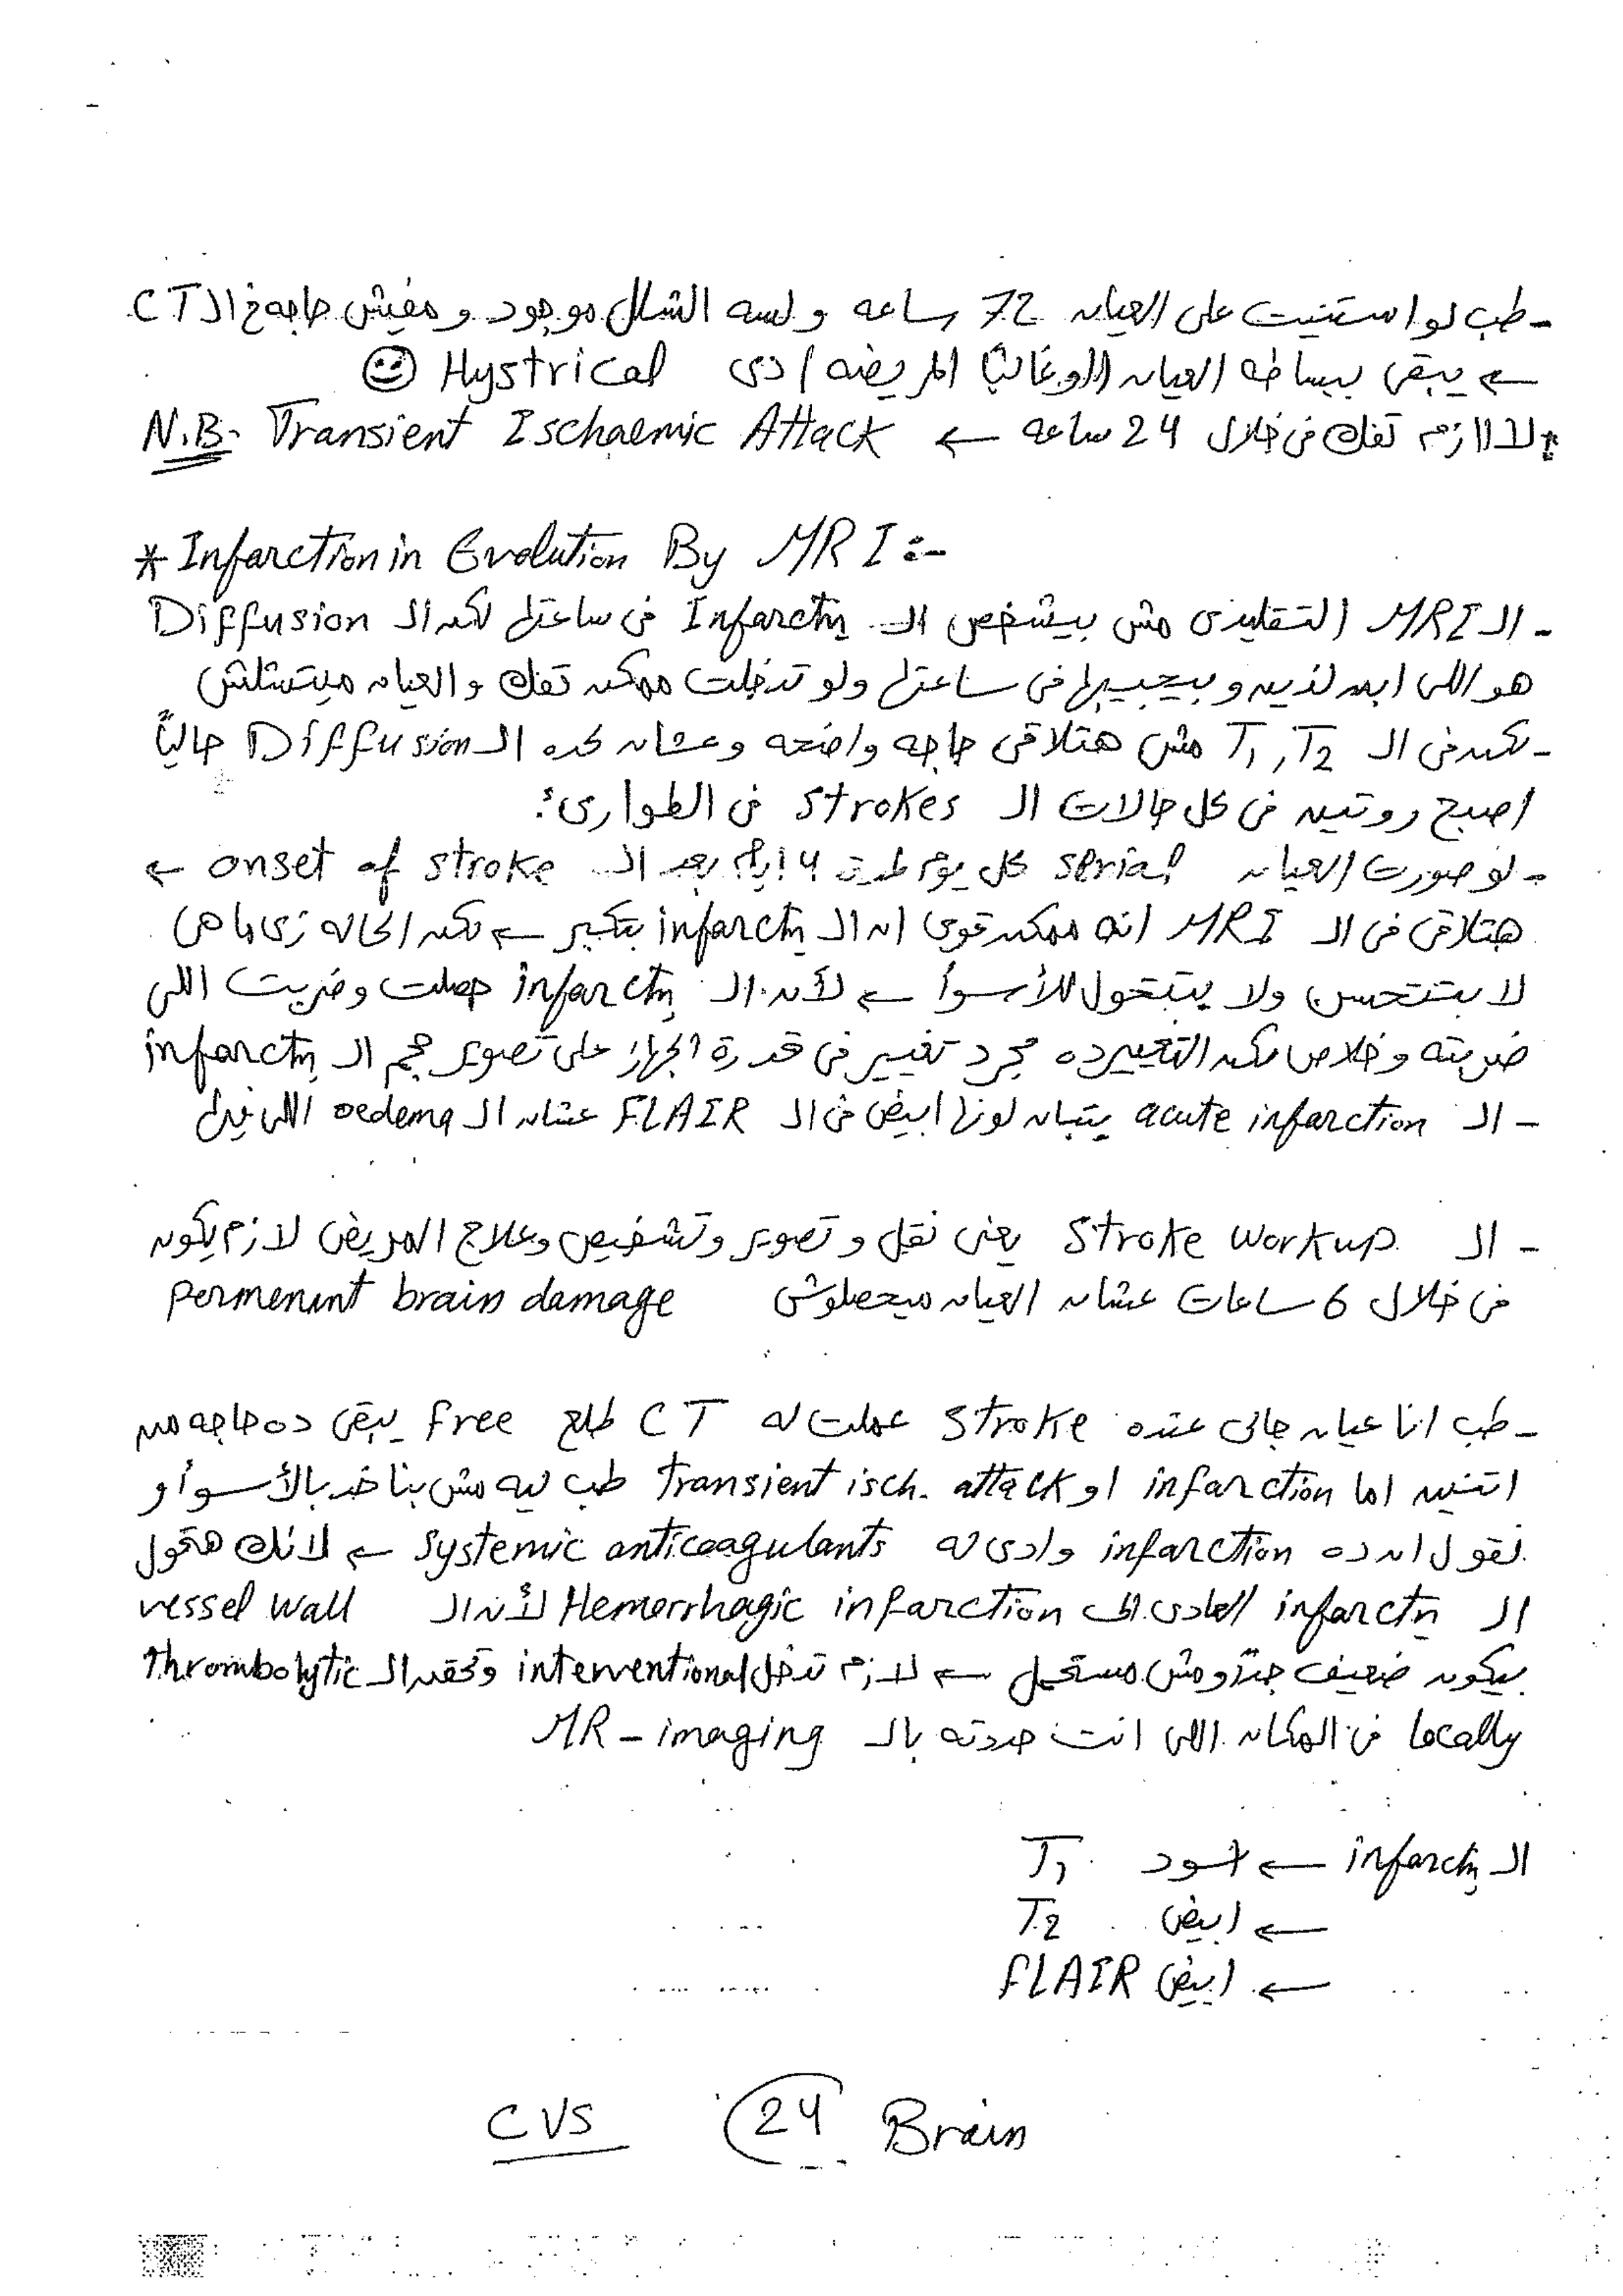 - طب لو استنيت على العيان 72 ساعه ولسه الشلل موجود و مفيش حاجه فى الـ CT
← يبقى ببساطه العيان (او غالباً المريضه) دى Hystrical ☺
N.B. Transient Ischaemic Attack ← لا لازم تفك فى خلال 24 ساعه *
* Infarction in Evolution By MRI :-
- الـ MRI التقليدى مش بيشخص الـ Infarctn فى ساعتها لكن الـ Diffusion
هو اللى ابن لذينه و بيجيبها فى ساعتها ولو تدخلت ممكن تفك والعيان ميتشلش
- لكن فى الـ T1, T2 مش هتلاقى حاجه واضحه وعشان كده الـ Diffusion حالياً
اصبح روتين فى كل حالات الـ strokes فى الطوارئ:
- لو صورت العيان serial كل يوم لمدة 4 ايام بعد الـ onset of stroke ←
هتلاقى فى الـ MRI انه ممكن قوى ان الـ infarctn بتكبر ← لكن الحاله زى ما هى
لا بتتحسن ولا بتتحول للأسوأ ← لأن الـ infarctn حصلت وضربت اللى
ضربته وخلاص لكن التغيير ده مجرد تغيير فى قدرة الجهاز على تصوير حجم الـ infarctn
- الـ acute infarction يتبان لونها ابيض فى الـ FLAIR عشان الـ oedema اللى فيها
- الـ Stroke workup يعنى نقل و تصوير وتشخيص وعلاج المريض لازم يكون
فى خلال 6 ساعات عشان العيان ميحصلوش permenent brain damage
- طب انا عيان جالى عنده Stroke عملت له CT طلع free يبقى ده حاجه من
اتنين اما infarction او transient isch. attack طب ليه مش بناخد بالأسوأ و
نقول ان ده infarction وادى له systemic anticoagulants ← لانك هتحول
الـ infarctn العادى الى Hemorrhagic infarction لأن الـ vessel wall
بيكون ضعيف جداً ومش مستحمل ← لازم تدخل interventional وتحقن الـ thrombolytic
locally فى المكان اللى انت حددته بالـ MR-imaging
الـ infarctn ← اسود T1
← ابيض T2
← ابيض FLAIR
CVS 24 Brain